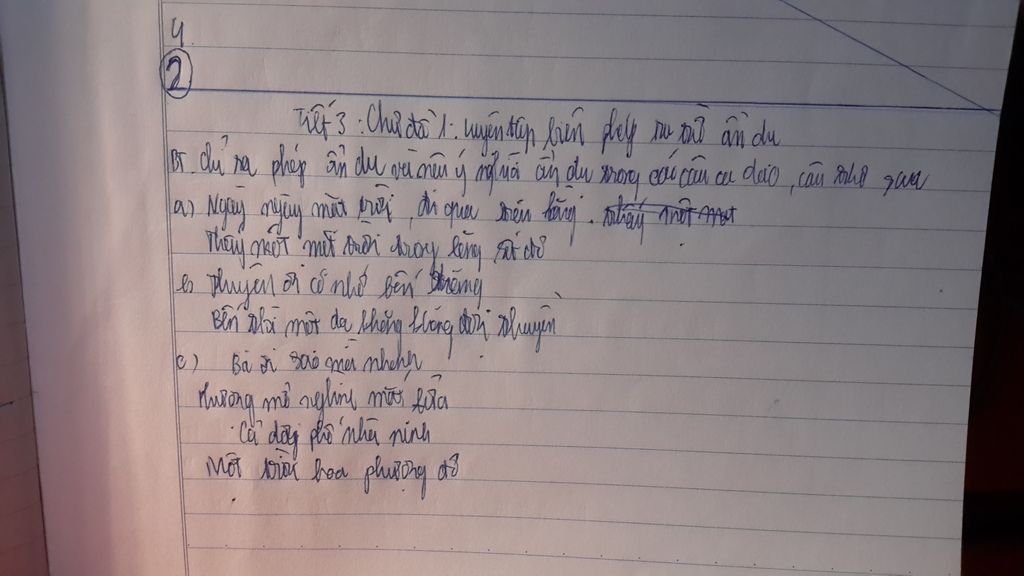 4
2
Tiết 3: Chủ đề 1: Luyện tập biện pháp tu từ ẩn dụ
BT. chỉ ra phép ẩn dụ và nêu ý nghĩa ẩn dụ trong các câu ca dao, câu thơ sau
a) Ngày ngày mặt trời đi qua trên lăng. thấy một mặt
Thấy một mặt trời trong lăng rất đỏ
b) Thuyền ơi có nhớ bến chăng
Bến thì một dạ khăng khăng đợi thuyền
c) Bà ơi sao mà nhanh
Phượng mở nghìn mắt lửa
Cả dãy phố nhà mình
Một trời hoa phượng đỏ